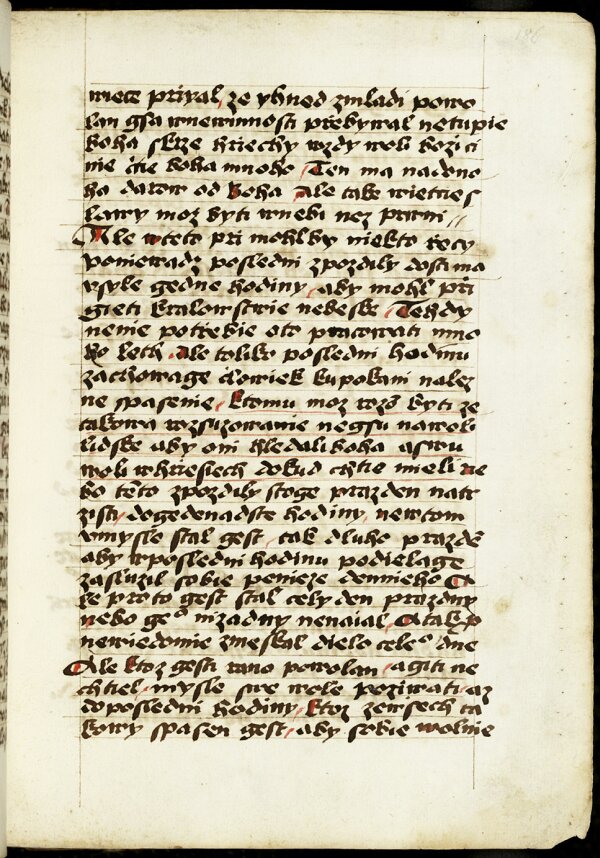 186
wiece przyal, ze yhned zmladi powo
lan gsa wnewinnosti přebywal netupie
boha skrze hriechy wzdy woli bozi ci
nie čtie boha mnoho Ten ma nadeno
ho darow od boha Ale take wietcie s
lawy moz byti wnebi nez prwni
Ale wteto při mohl by niekto rzecy
poniewadz posledni zpozdily dosti ma
vsyle gedne hodiny, aby mohl při
gieti kralowstwie nebeske Tehdy
nenie potrebie oto pracowati mno
ho leth, Ale toliko posledni hodinu
zachowage člowiek kupokani nalez
ne spasenie, ktomu moz rozō byti ze
takowa rozsuzowanie negsu nawoli
lidske aby oni hledali boha aswu
woli whriesiech dokud chtie mieli ne
bo tēto zpozdily stoge prazden na tr
zisti, dogedenadste hodiny, new tom
vmysle stal gest, tak dluho prazdē
aby wposledni hodinu podielage
zasluzil sobie penieze denneho A
le proto gest stal cely den prazdny
nebo geº nizadny nenaial, A tak p
newiedomie zmeskal dielo celeº dne
Ale ktoz gesti rano powolan, a giti ne
chtiel, mysle swe wole pozivati az
do posledni hodiny, ktoz zewsech ta
kowy spasen gest, aby sobie wolnie